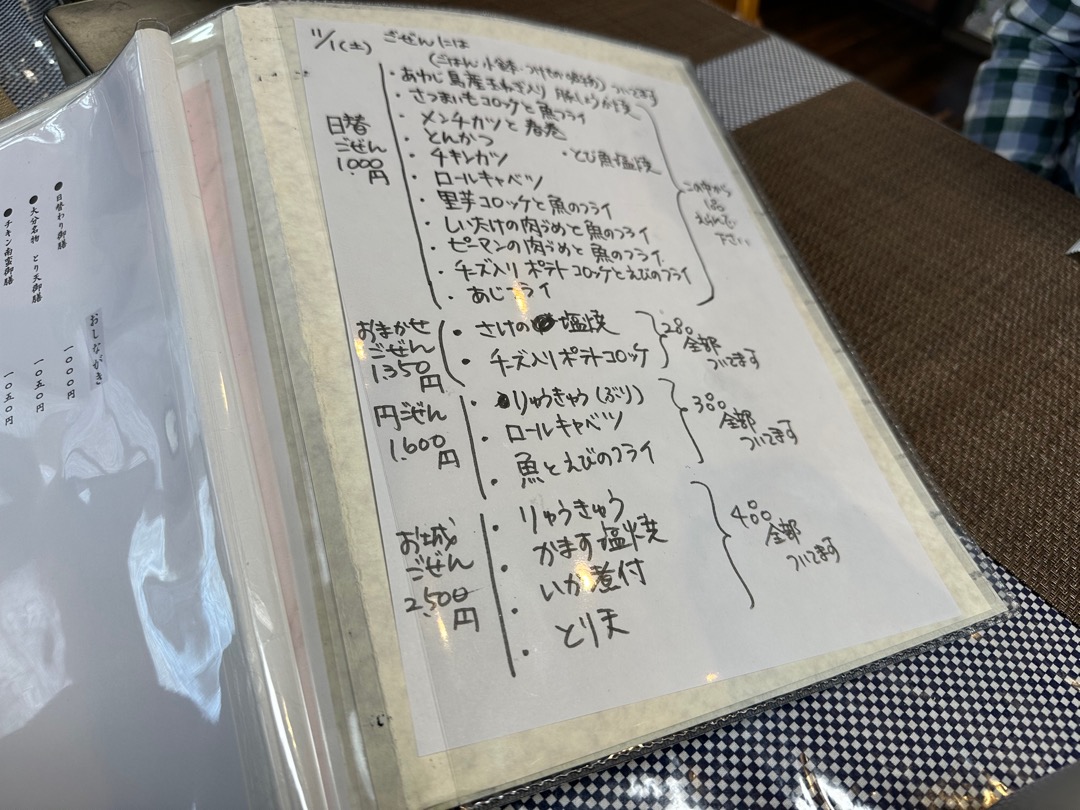 11/1(土)
ごぜんには
(ごはん 小鉢 つけもの 味噌) ついてます
日替
ごぜん
1,000
円
・あわじ島産玉ねぎ入り 豚しょうが焼
・さつまいもコロッケと魚フライ
・メンチカツと春巻
・とんかつ
・チキンカツ
・とび魚塩焼
・ロールキャベツ
・里芋コロッケと魚のフライ
・しいたけの肉づめと魚のフライ
・ピーマンの肉づめと魚のフライ
・チーズ入りポテトコロッケとえびのフライ
・あじフライ
この中から
1品
えらんで
下さい
おまかせ
ごぜん
1,350
円
・さけの塩焼
・チーズ入りポテトコロッケ
2品
全部
ついてます
円ごぜん
1,600
円
・りゅうきゅう(ぶり)
・ロールキャベツ
・魚とえびのフライ
3品
全部
ついてます
お城
ごぜん
2,500
円
・りゅうきゅう
・かます塩焼
・いか煮付
・とり天
4品
全部
ついてます
おしながき
●日替わり御膳 一〇〇〇円
●大分名物 とり天御膳 一〇五〇円
●チキン南蛮御膳 一〇五〇円